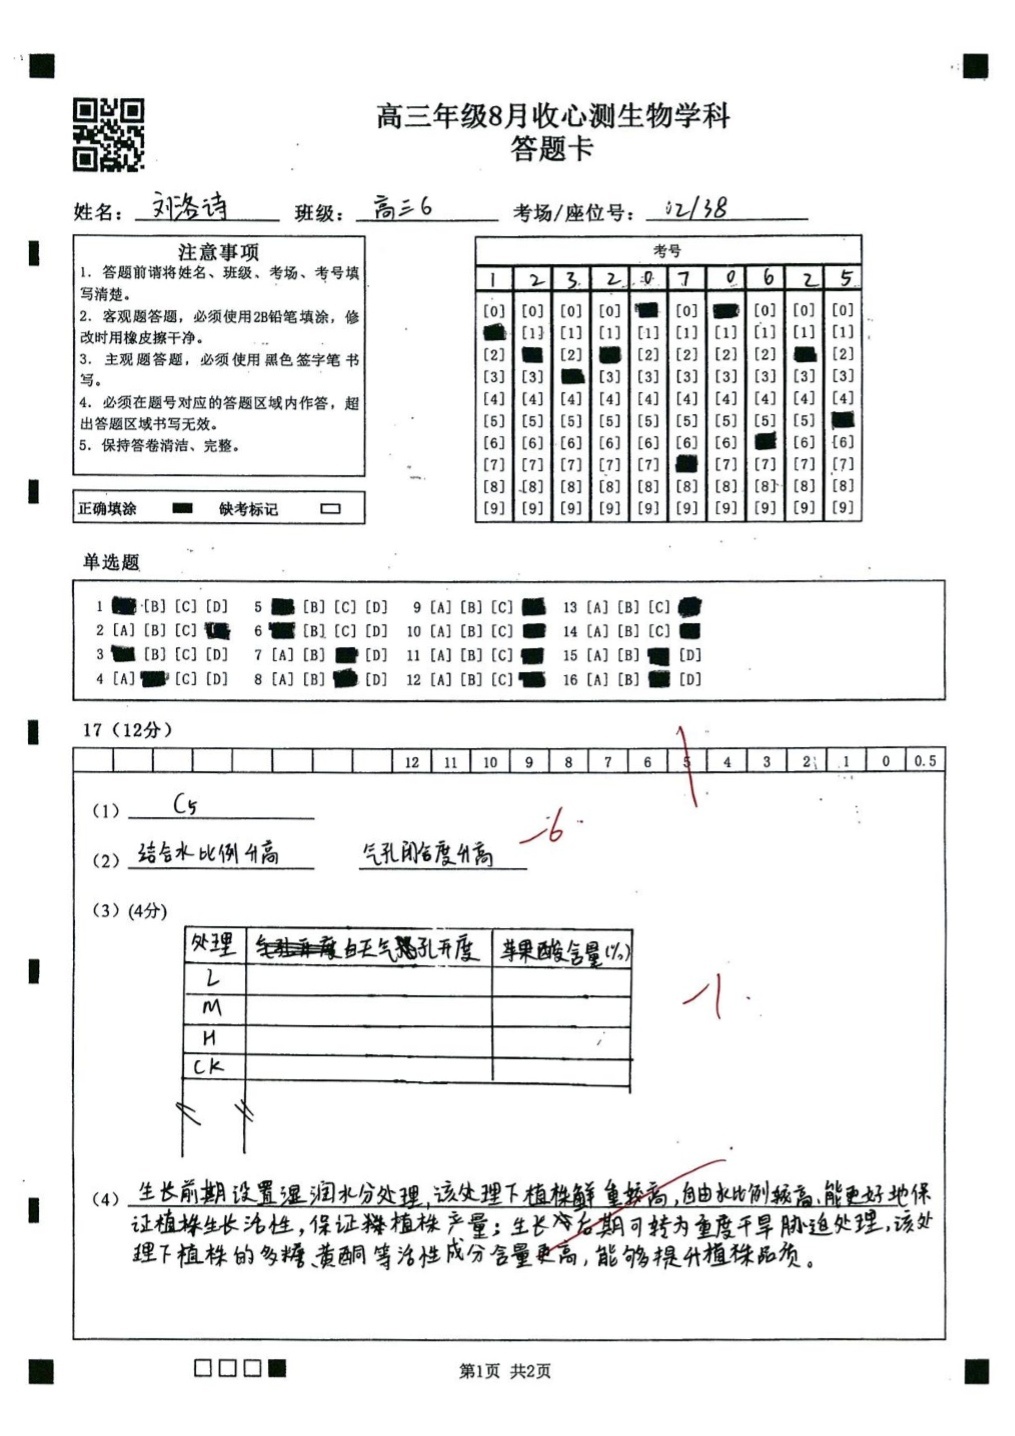 高三年级8月收心测生物学科
答题卡
姓名： 刘洛诗 班级： 高三6 考场/座位号： 02/38
注意事项
1．答题前请将姓名、班级、考场、考号填
写清楚。
2．客观题答题，必须使用2B铅笔填涂，修
改时用橡皮擦干净。
3．主观题答题，必须使用黑色签字笔书
写。
4．必须在题号对应的答题区域内作答，超
出答题区域书写无效。
5．保持答卷清洁、完整。
正确填涂 缺考标记
考号
1 2 3 2 0 7 0 6 2 5
[0] [0] [0] [0] [0] [0] [0] [0]
[1] [1] [1] [1] [1] [1] [1] [1] [1]
[2] [2] [2] [2] [2] [2] [2]
[3] [3] [3] [3] [3] [3] [3] [3] [3]
[4] [4] [4] [4] [4] [4] [4] [4] [4] [4]
[5] [5] [5] [5] [5] [5] [5] [5] [5]
[6] [6] [6] [6] [6] [6] [6] [6] [6]
[7] [7] [7] [7] [7] [7] [7] [7] [7]
[8] [8] [8] [8] [8] [8] [8] [8] [8] [8]
[9] [9] [9] [9] [9] [9] [9] [9] [9] [9]
单选题
1 [B] [C] [D] 5 [B] [C] [D] 9 [A] [B] [C] 13 [A] [B] [C]
2 [A] [B] [C] 6 [B] [C] [D] 10 [A] [B] [C] 14 [A] [B] [C]
3 [B] [C] [D] 7 [A] [B] [D] 11 [A] [B] [C] 15 [A] [B] [D]
4 [A] [C] [D] 8 [A] [B] [D] 12 [A] [B] [C] 16 [A] [B] [D]
17（12分）
12 11 10 9 8 7 6 5 4 3 2 1 0 0.5
（1） C5
6
（2） 结合水比例升高 气孔闭合度升高
（3）(4分)
处理 白天气孔开度 苹果酸含量(%)
L
M
H
CK
1
（4） 生长前期设置湿润水分处理，该处理下植株鲜重较高，自由水比例较高，能更好地保
证植株生长活性，保证植株产量；生长后期可转为重度干旱胁迫处理，该处
理下植株的多糖、黄酮等活性成分含量更高，能够提升植株品质。
第1页 共2页